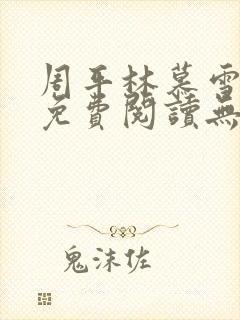 周平林慕雪
免費閱讀無
鬼沫佐